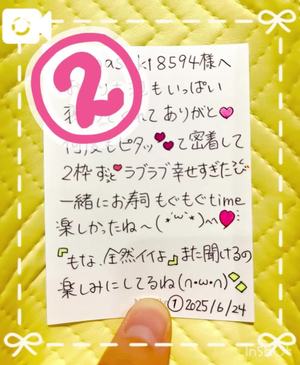 ②
k18594様へ
もいっぱい
てありがと
ピタッ て密着して
2枠ずっとラブラブ幸せすぎた
一緒にお寿司もぐもぐtime
楽しかったね〜(*'ω'*)
『もな、全然イイよ』また聞けるの
楽しみにしてるね(∩•ω•∩)
①2025/6/24